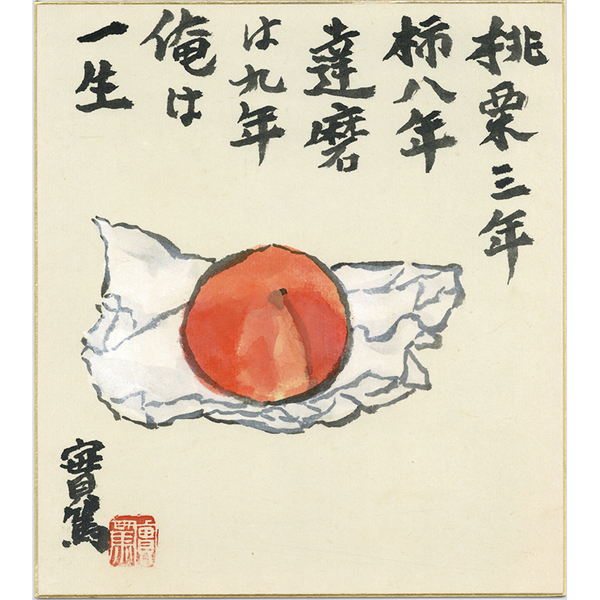 桃栗三年
柿八年
達磨
は九年
俺は
一生
實篤
實篤